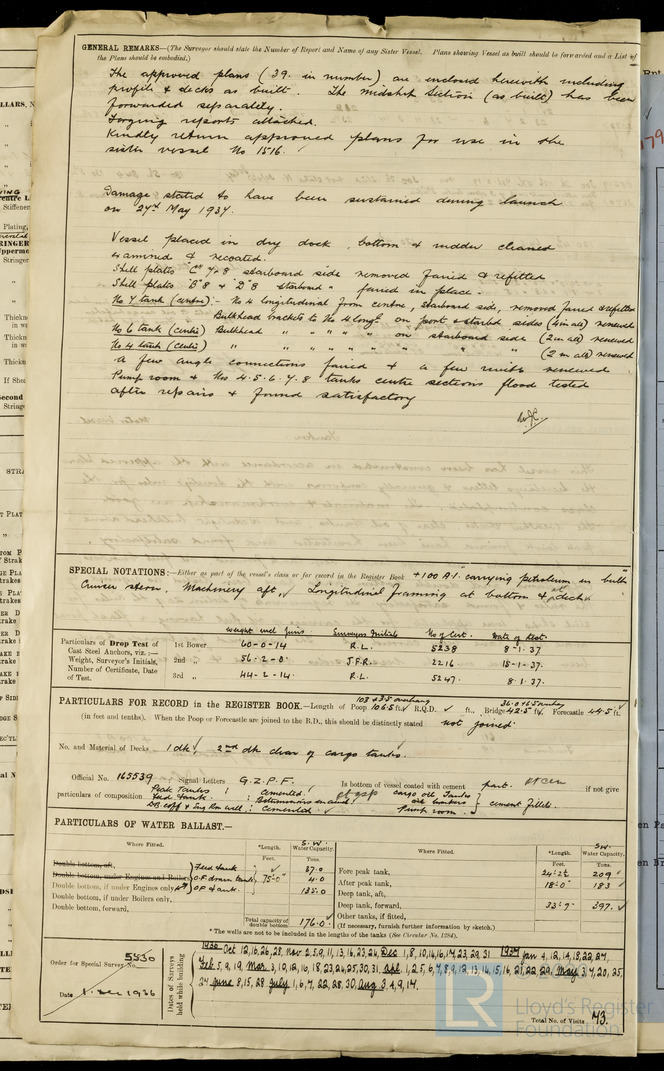 GENERAL REMARKS—(The Surveyor should state the Number of Report and Name of any Sister Vessel. Plans showing Vessel as built should be forwarded and a List of
the Plans should be embodied.)
The approved plans (39. in number) are enclosed herewith including
profile & decks as built. The midship Section (as built) has been
forwarded separately.
Forging reports attached.
Kindly return approved plans for use in the
sister vessel No 1516.
Damage stated to have been sustained during launch
on 27th May 1937.
Vessel placed in dry dock, bottom & rudder cleaned
examined & recoated.
Shell plates "C" 7 & 8 starboard side removed faired & refitted
Shell plates B 8 & D 8 starboard " faired in place.
No 7 tank (centre):- No 4 longitudinal from centre, starboard side, removed faired & refitted
Bulkhead brackets to No 4 longl on port & starbd sides (4 in all) renewed
No 6 tank (centre) Bulkhead " " " " " on starboard side (2 in all) renewed
No 4 tank (centre) " " " " " " " " (2 in all) renewed
A few angle connections faired & a few rivets renewed
Pump room & Nos 4.5.6.7.8 tanks centre sections flood tested
after repairs & found satisfactory
SPECIAL NOTATIONS:—Either as part of the vessel's class or for record in the Register Book "+100 A.1. carrying petroleum in bulk"
Cruiser stern, Machinery aft, Longitudinal framing at bottom & at deck
Weight incl Pins Surveyors Initials No of Cert. Date of test.
Particulars of Drop Test of
Cast Steel Anchors, viz.:—
Weight, Surveyor's Initials,
Number of Certificate, Date
of Test.
1st Bower 60-0-14 R.L. 5238 8-1-37
2nd " 56-2-0 J.F.R. 2216 15-1-37.
3rd " 44-2-14. R.L. 5247. 8.1.37.
103 + 3.5 overhang 36.0 + 6.5 overhang
PARTICULARS FOR RECORD in the REGISTER BOOK.—Length of Poop 106.5 ft., R.Q.D. ft., Bridge 42.5 ft., Forecastle 44.5 ft.
(in feet and tenths). When the Poop or Forecastle are joined to the B.D., this should be distinctly stated not joined.
No. and Material of Decks 1 dk, 2nd dk clear of cargo tanks.
Official No. 165539 Signal Letters G.Z.P.F. Is bottom of vessel coated with cement part. if not give
particulars of composition Peak Tanks : cemented. cargo oil Tanks
Feed tank : Bituminous enamel oil bunkers
DB. coff & Eng Rm well : cemented Pump room. cement fillets.
PARTICULARS OF WATER BALLAST.—
Where Fitted. *Length. S.W. Water Capacity. Where Fitted. *Length. S.W. Water Capacity.
Feet. Tons. Feet. Tons.
Double bottom, aft, Feed tank 37.0
Double bottom, under Engines and Boilers O.F. drain tank 75'0" 4.0
Double bottom, if under Engines only, O.F. tank. 135.0
Double bottom, if under Boilers only,
Double bottom, forward,
Total capacity of double bottom 176.0
Fore peak tank, 24'2½ 209
After peak tank, 18'0" 183
Deep tank, aft,
Deep tank, forward, 33'9" 397.
Other tanks, if fitted,
(If necessary, furnish further information by sketch.)
* The wells are not to be included in the lengths of the tanks (See Circular No. 1284).
Order for Special Survey No. 5530
Date 1. Dec 1936
Dates of Surveys held while building
1936 Oct 12, 16, 26, 28, Nov 2, 5, 9, 11, 13, 16, 23, 26, Dec 1, 8, 10, 16, 16, 14, 23, 29, 31 1937 Jan 4, 12, 14, 18, 22, 27,
Feb 5, 9, 19, Mar 3, 10, 12, 16, 18, 23, 24, 25, 30, 31, Apl 1, 2, 5, 6, 7, 8, 9, 12, 13, 14, 15, 16, 21, 22, 29, May 3, 7, 20, 25,
27 June 8, 15, 28 July 1, 6, 7, 22, 28, 30, Aug 3, 4, 9, 14.
Total No. of Visits 73.
LR
Lloyd's Register
Foundation